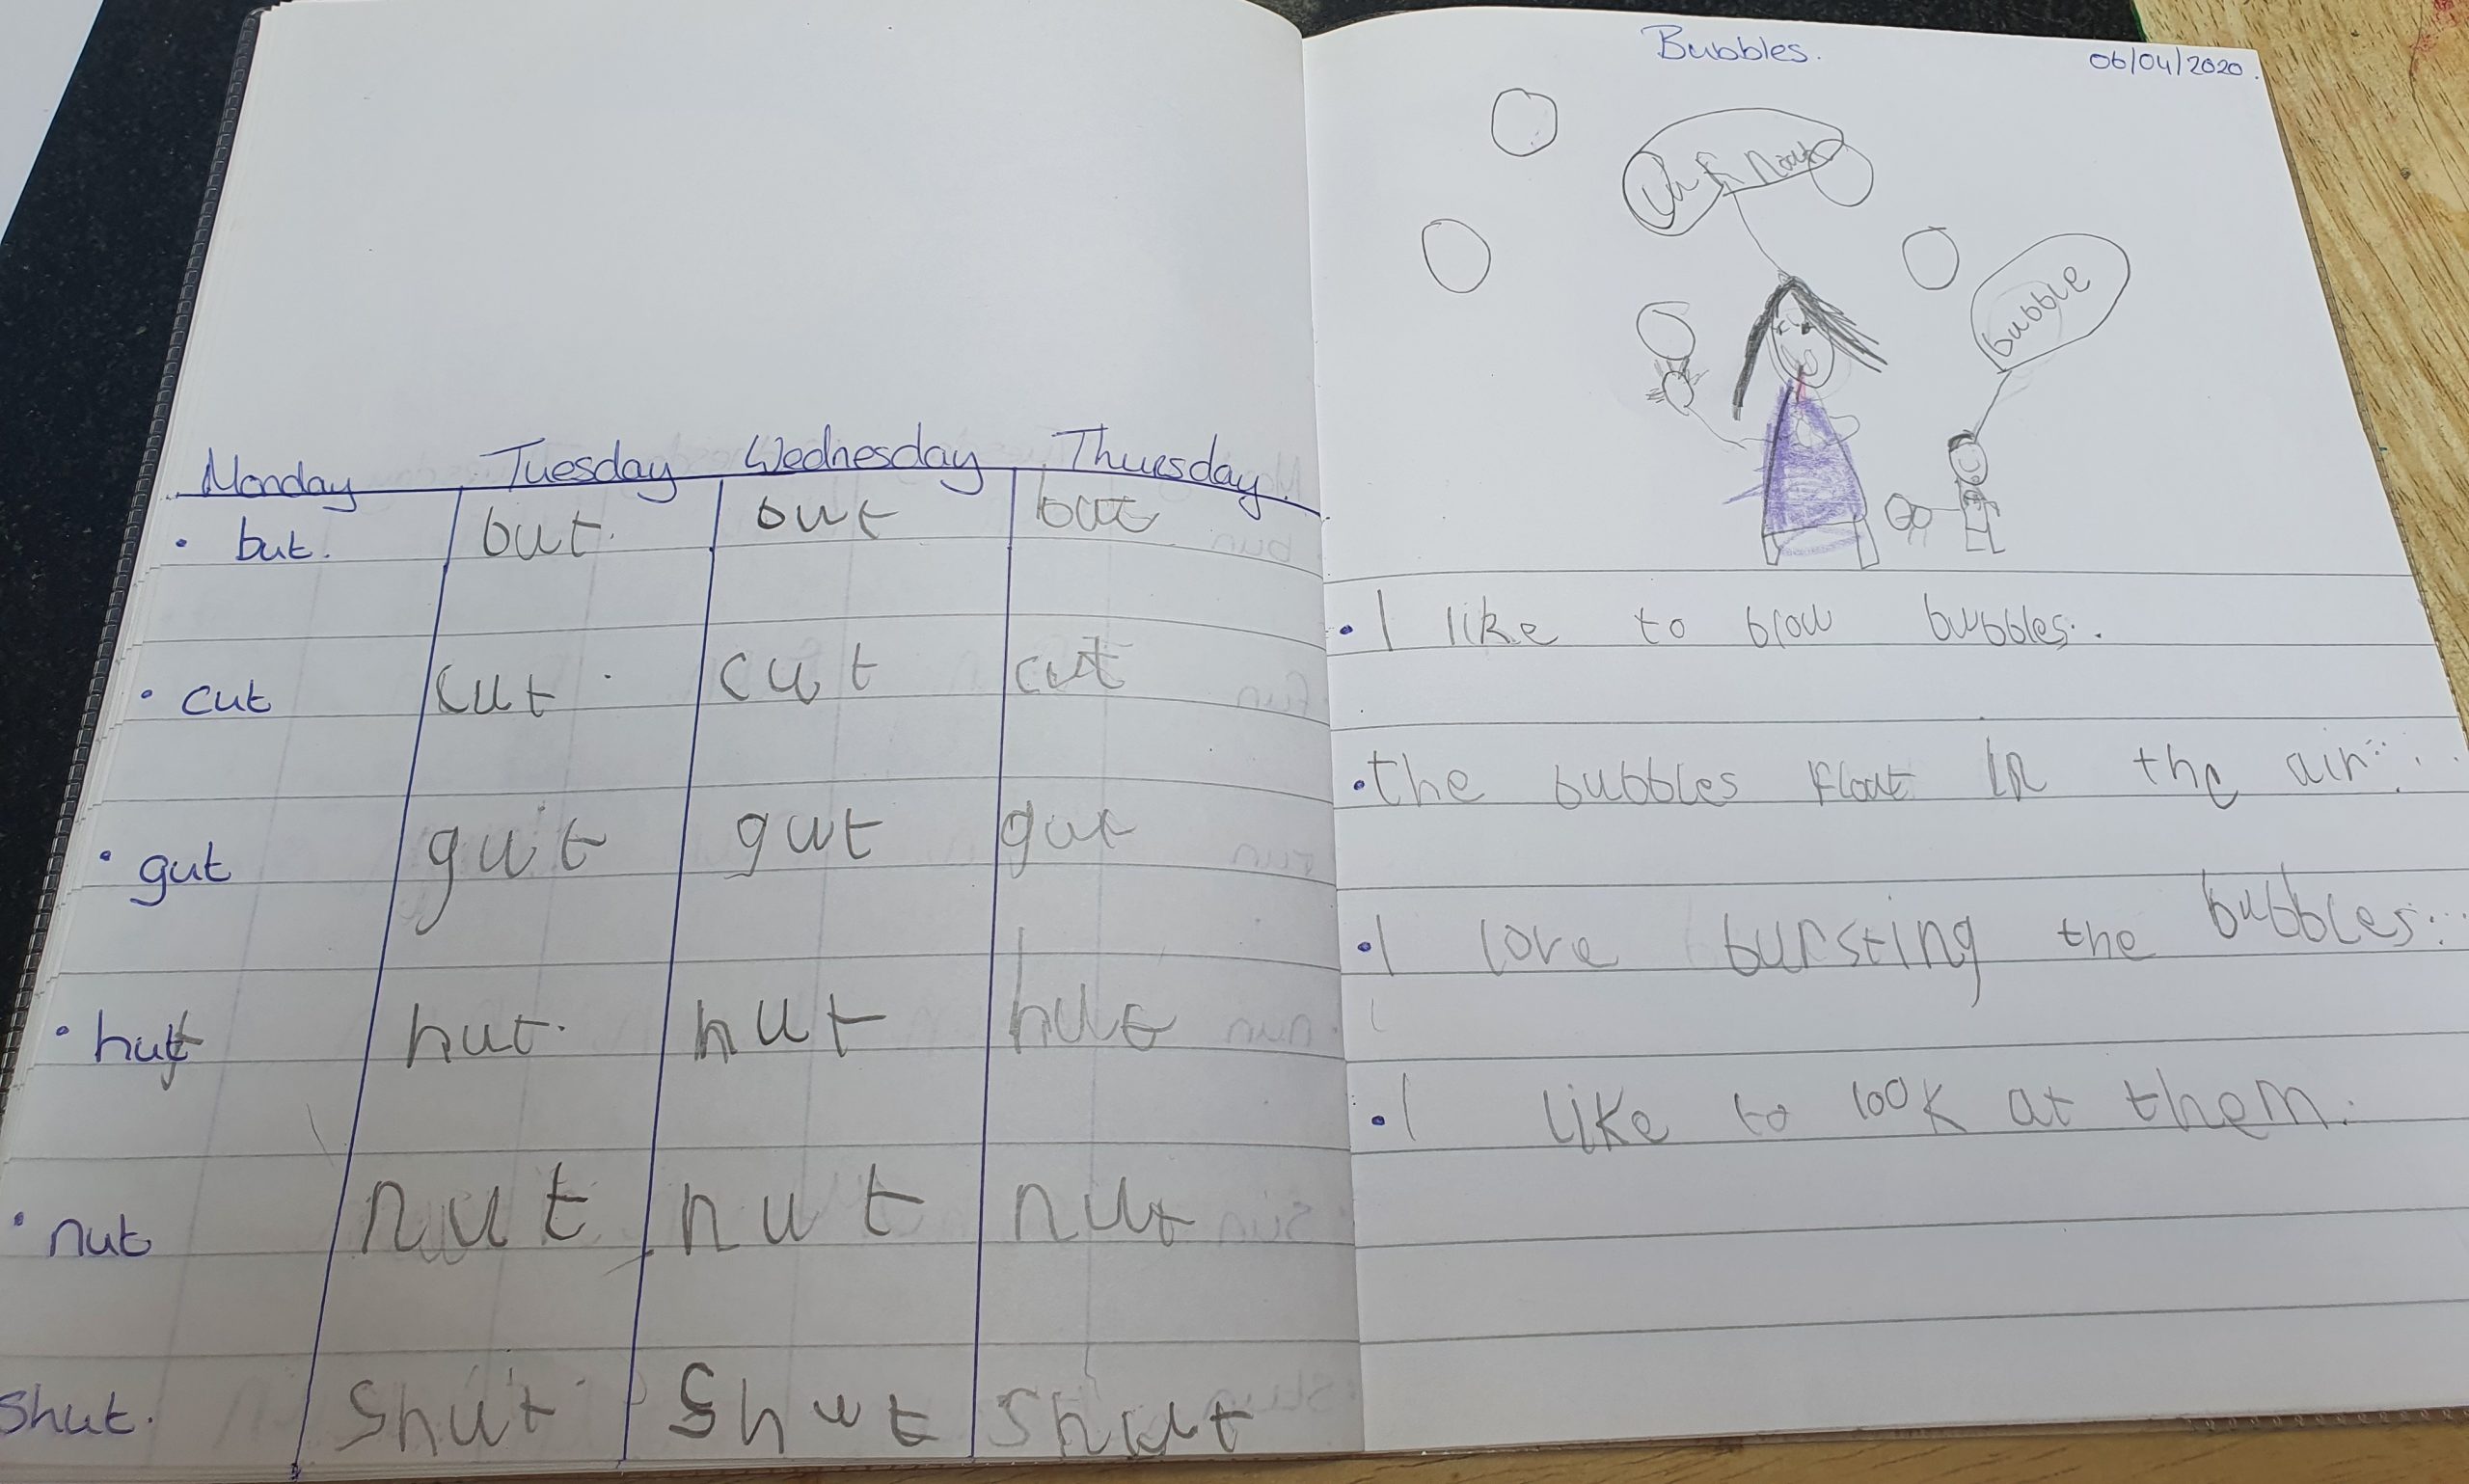 Monday Tuesday Wednesday Thursday.
• but. but. but but
• cut cut cut cut
• gut gut gut gut
• hut hut. hut hut
• nut nut nut nut
Shut. Shut Shut Shut
Bubbles. 06/04/2020.
bubble
• I like to blow bubbles.
• the bubbles float in the air.
• I love bursting the bubbles.
• I like to look at them.